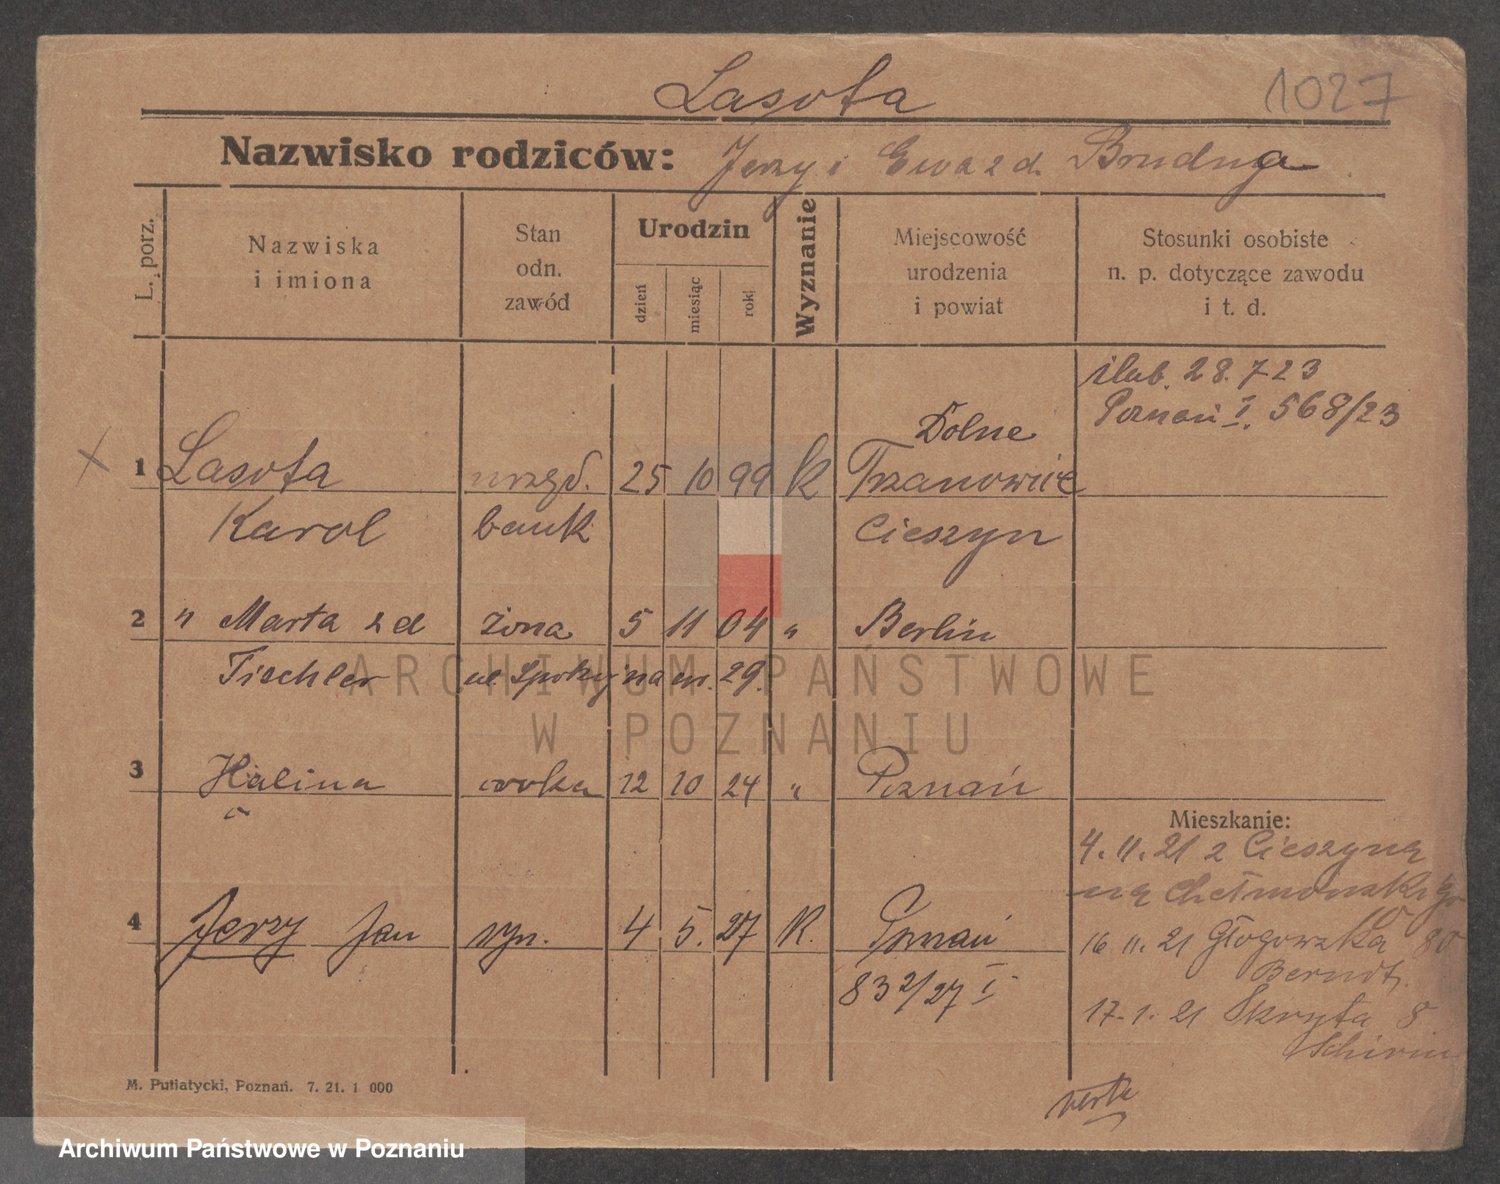 Lasota
1027
Nazwisko rodziców: Jerzy i Ewa z d. Brudnga
L. porz.
Nazwiska
i imiona
Stan
odn.
zawód
Urodzin
dzień
miesiąc
rok
Wyznanie
Miejscowość
urodzenia
i powiat
Stosunki osobiste
n. p. dotyczące zawodu
i t. d.
ślub. 28.7 23
Poznań I. 568/23
1 Lasota urzęd. 25 10 99 k Dolne Trzanowice
Karol bank Cieszyn
2 " Marta z d żona 5 11 04 " Berlin
Tischler ul. Spokojna nr. 29.
3 Halina córka 12 10 24 " Poznań
Mieszkanie:
4. 11. 21 z Cieszyna
na Chełmońskiego
4 Jerzy Jan syn. 4 5. 27 K. Poznań
832/27 I
16 11. 21 Głogowska 80
Berndt.
17. 1. 21 Skryta 8
verte
M. Putiatycki, Poznań. 7. 21. 1 000
ARCHIWUM PAŃSTWOWE
W POZNANIU
Archiwum Państwowe w Poznaniu